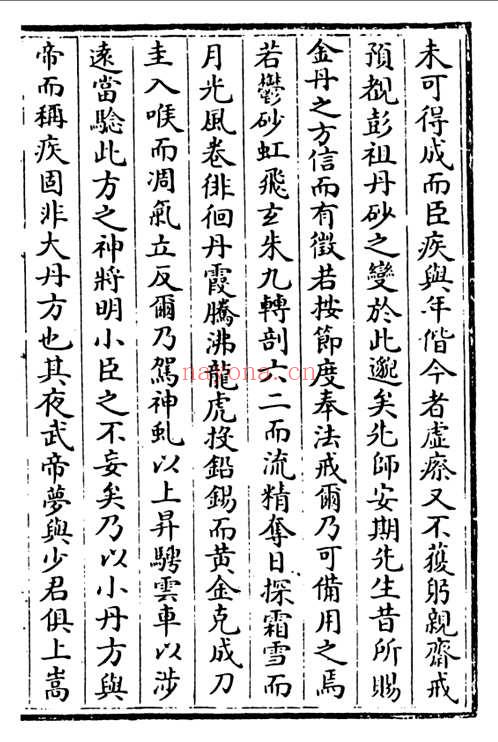 未可得成而臣疾與年偕今者虛瘵又不獲躬親齋戒
預覩彭祖丹砂之變於此邈矣先師安期先生昔所賜
金丹之方信而有徵若按節度奉法戒爾乃可備用之焉
若鬱砂虹飛玄朱九轉剖六二而流精奪日探霜雪而
月光風卷徘徊丹霞騰沸龍虎投鉛錫而黃金克成刀
圭入喉而凋氣立反爾乃駕神虬以上昇騁雲車以涉
遠當驗此方之神將明小臣之不妄矣乃以小丹方與
帝而稱疾固非大丹方也其夜武帝夢與少君俱上嵩
nayona.cn